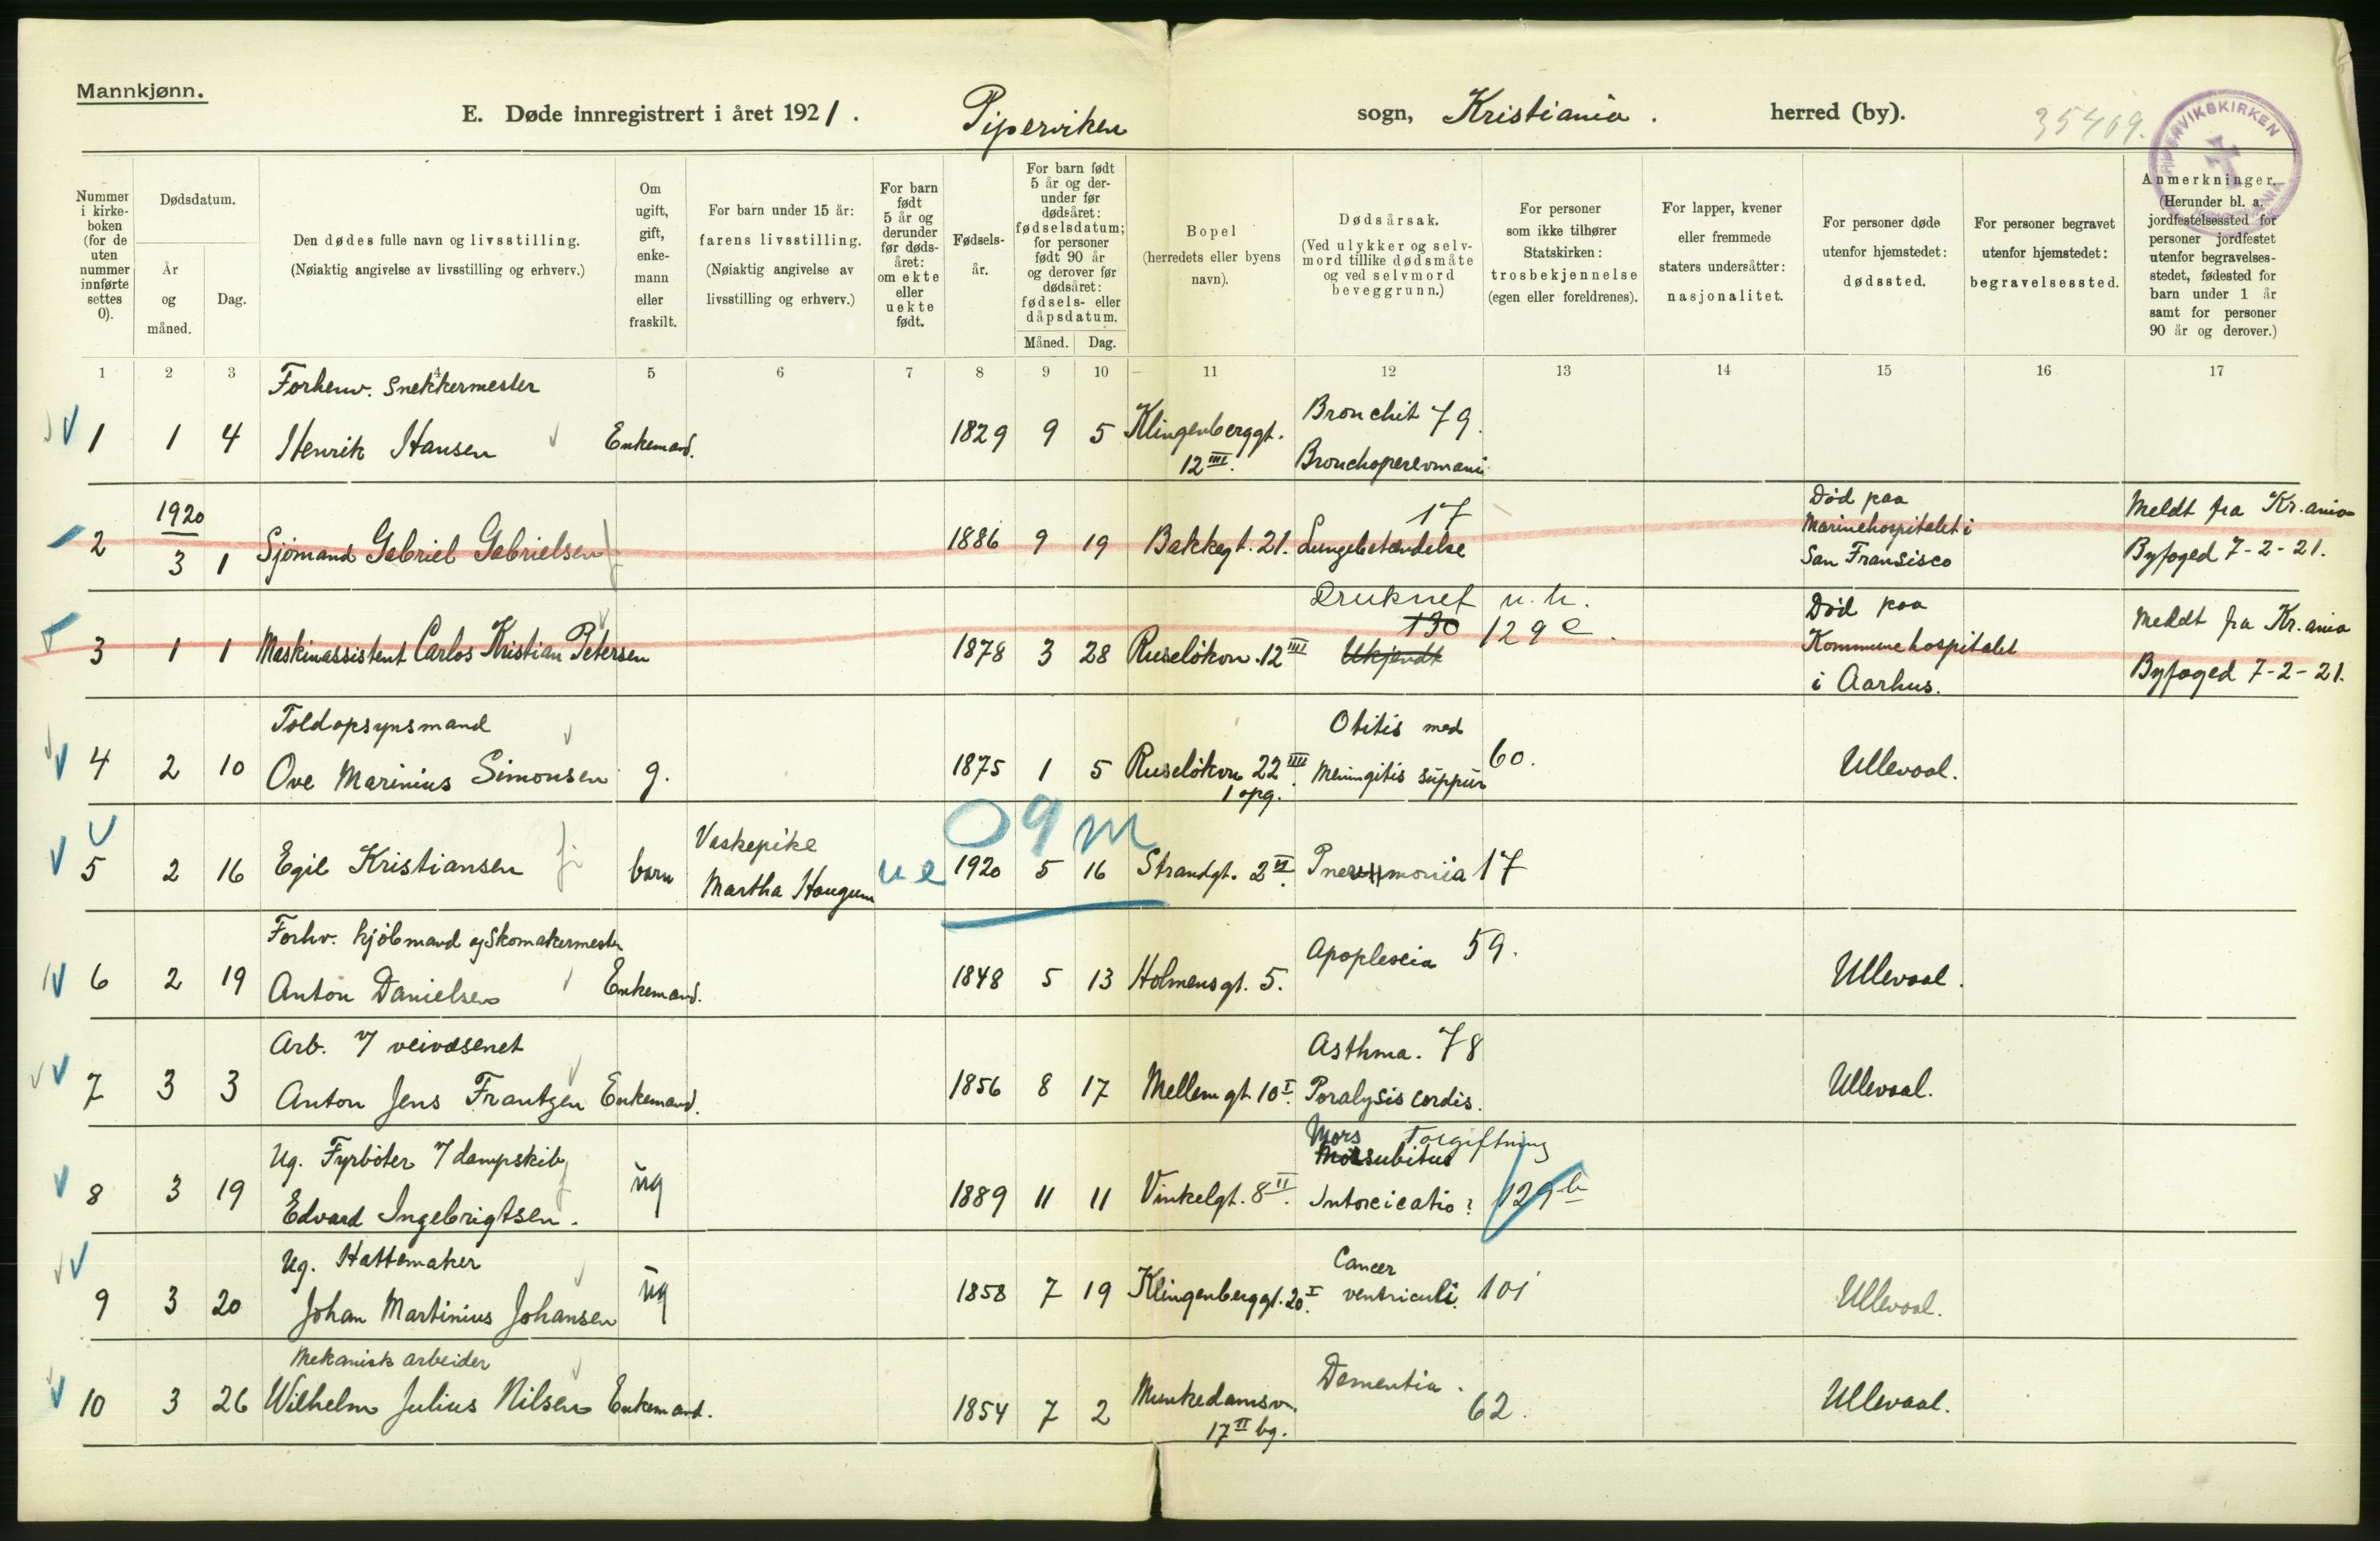 Mannkjønn.
E. Døde innregistrert i året 1921. Piperviken sogn, Kristiania. herred (by). 35409.
PIPERVIKSKIRKEN
Nummer i kirke-boken (for de uten nummer innførte settes 0).
Dødsdatum.
År og måned.
Dag.
Den dødes fulle navn og livsstilling.
(Nøiaktig angivelse av livsstilling og erhverv.)
Om ugift, gift, enke-mann eller fraskilt.
For barn under 15 år:
farens livsstilling.
(Nøiaktig angivelse av livsstilling og erhverv.)
For barn født 5 år og derunder før døds-året: om ekte eller uekte født.
Fødsels-år.
For barn født 5 år og der-under før dødsåret: fødselsdatum; for personer født 90 år og derover før dødsåret: fødsels- eller dåpsdatum.
Måned.
Dag.
Bopel
(herredets eller byens navn).
Dødsårsak.
(Ved ulykker og selv-mord tillike dødsmåte og ved selvmord beveggrunn.)
For personer som ikke tilhører Statskirken: trosbekjennelse (egen eller foreldrenes).
For lapper, kvener eller fremmede staters undersåtter: nasjonalitet.
For personer døde utenfor hjemstedet: dødssted.
For personer begravet utenfor hjemstedet: begravelsessted.
Anmerkninger.
(Herunder bl. a. jordfestelsessted for personer jordfestet utenfor begravelses-stedet, fødested for barn under 1 år samt for personer 90 år og derover.)
1 2 3 4 5 6 7 8 9 10 11 12 13 14 15 16 17
Forhenv. Snekkermester
1 1 4 Henrik Hansen Enkemand. 1829 9 5 Klingenberggt. 12 III. Bronchit 79.
2 1920 3 1 Sjömand Gabriel Gabrielsen 1886 9 19 Bakkegt. 21. Lungebetændelse 17
Død paa Marinehospitalet i San Fransisco
Meldt fra Kr.ania Byfoged 7-2-21.
3 1 1 Maskinassistent Carlos Kristian Petersen 1878 3 28 Ruseløkvn. 12 III Druknet u. h.
130 129 e.
Ukjendt
Død paa Kommunehospitalet i Aarhus.
Meldt fra Kr.ania Byfoged 7-2-21.
Toldopsynsmand
4 2 10 Ove Marinius Simonsen g. 1875 1 5 Ruseløkvn 22 IIII. 1 opg. Otitis med Meningitis suppur 60. Ullevaal.
09 m
5 2 16 Egil Kristiansen barn Vaskepike Martha Haugum ue 1920 5 16 Strandgt. 2 VI. Pneumonia 17
Forhv. kjöbmand og Skomakermester
6 2 19 Anton Danielsen Enkemand. 1848 5 13 Holmensgt. 5. Apoplexia 59. Ullevaal.
Arb. v/ veivæsenet
7 3 3 Anton Jens Frantzen Enkemand. 1856 8 17 Mellemgt. 10 I. Asthma. 78 Paralysis cordis. Ullevaal.
Ug. Fyrböter v/ dampskib
8 3 19 Edvard Ingebrigtsen. ug 1889 11 11 Vinkelgt. 8 II. Mors subitus Forgiftning
Intoxicatio? 129 b
Ug. Hattemaker
9 3 20 Johan Martinius Johansen ug 1858 7 19 Klingenberggt. 20 I. Cancer ventriculi. 101 Ullevaal.
Mekanisk arbeider
10 3 26 Wilhelm Julius Nilsen Enkemand. 1854 7 2 Munkedamsv. 17 II bg. Dementia. 62. Ullevaal.